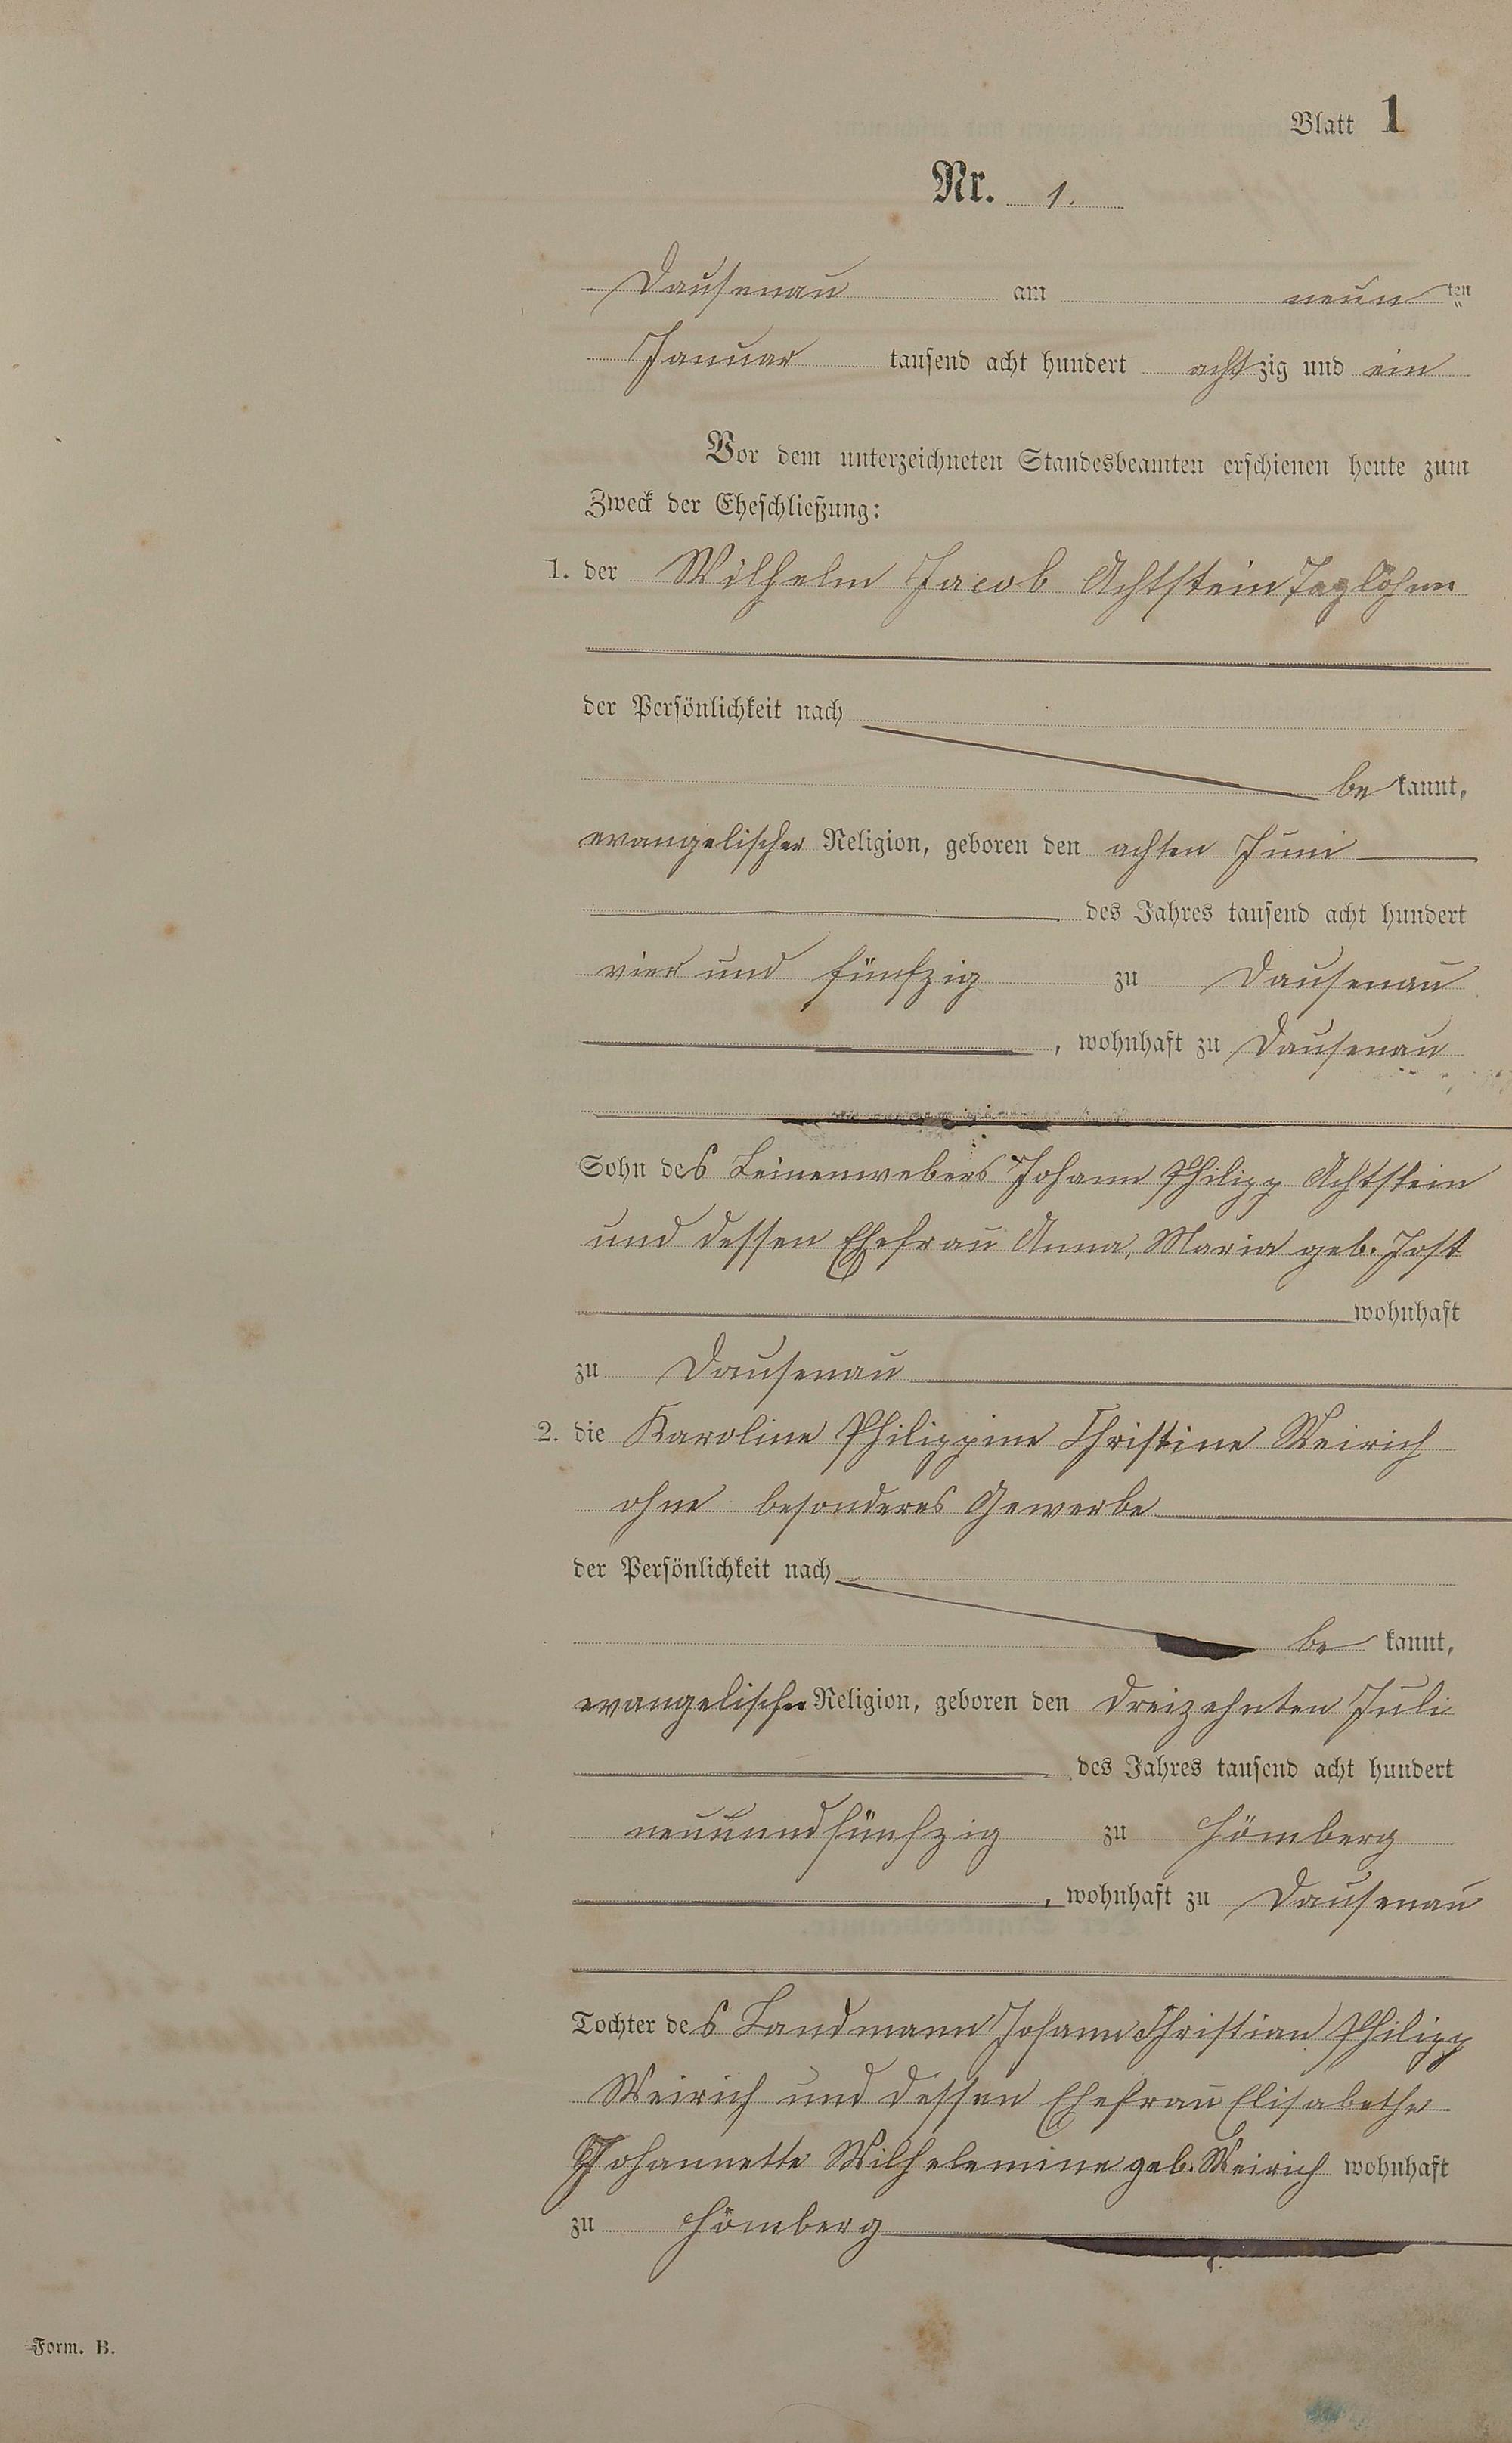 Blatt 1
Nr. 1.
Dausenau am neun ten
Januar tausend acht hundert achtzig und ein
Vor dem unterzeichneten Standesbeamten erschienen heute zum
Zweck der Eheschließung:
1. der Wilhelm Jacob Achtstein Taglöhner
der Persönlichkeit nach
be kannt,
evangelischer Religion, geboren den achten Juni
des Jahres tausend acht hundert
vier und fünfzig zu Dausenau
, wohnhaft zu Dausenau
Sohn des Leinenwebers Johann Philipp Achtstein
und dessen Ehefrau Anna, Maria geb. Jost
wohnhaft
zu Dausenau
2. die Karoline Philippine Christine Weirich
ohne besonderes Gewerbe
der Persönlichkeit nach
be kannt,
evangelischer Religion, geboren den dreizehnten Juli
des Jahres tausend acht hundert
neunundfünfzig zu Hömberg
, wohnhaft zu Dausenau
Tochter des Landmann Johann Christian Philipp
Weirich und dessen Ehefrau Elisabethe
Johannette Wilhelemine geb. Weirich wohnhaft
zu Hömberg
Form. B.